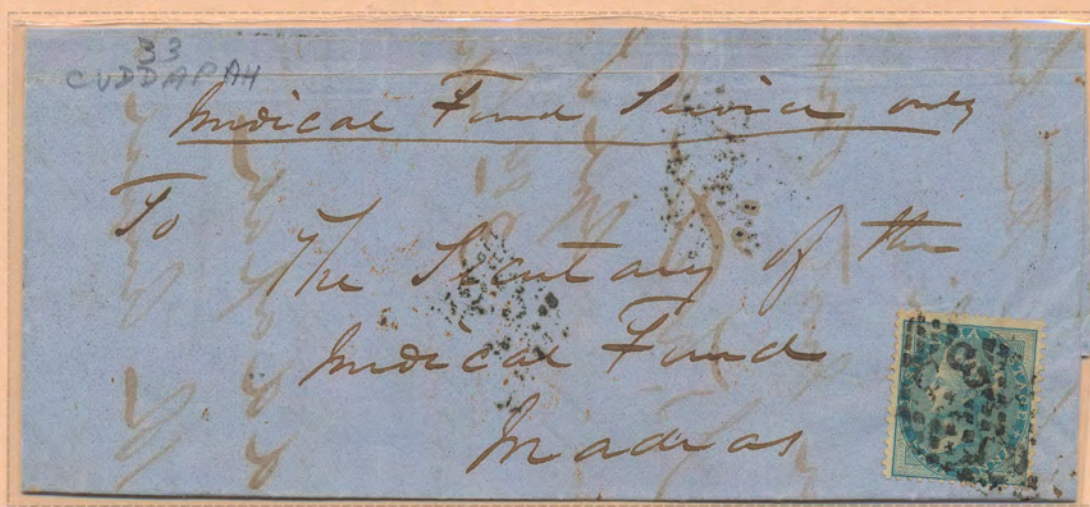 33
CUDDAPAH
Medical Fund Service only
To
The Secretary of the
Medical Fund
Madras